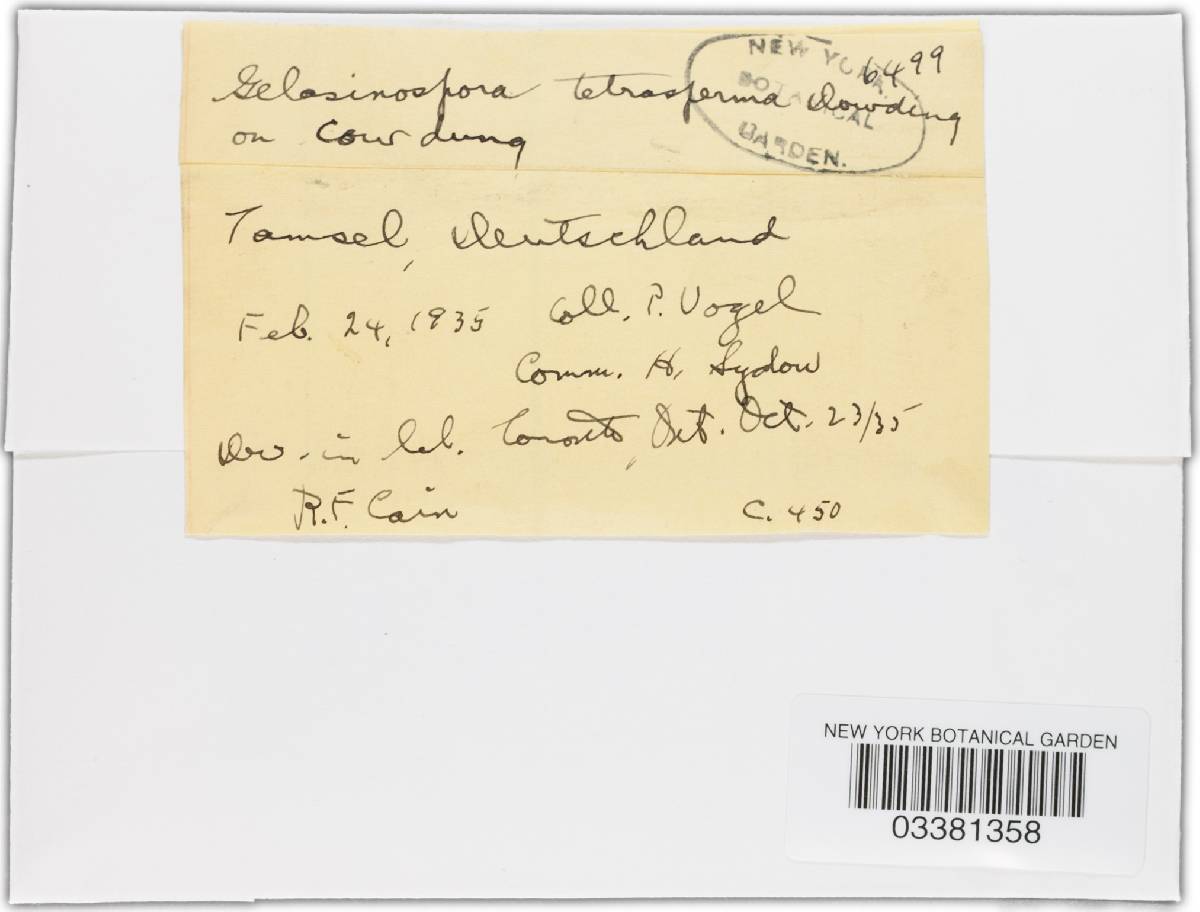 6499
Gelasinospora tetrasperma Dowding
on cow dung
NEW YORK
BOTANICAL
GARDEN.
Tamsel, Deutschland
Feb. 24, 1935 Coll. P. Vogel
Comm. H. Sydow
Dev. in lab. Toronto, Det. Oct. 23/35
R.F. Cain C. 450
NEW YORK BOTANICAL GARDEN
03381358